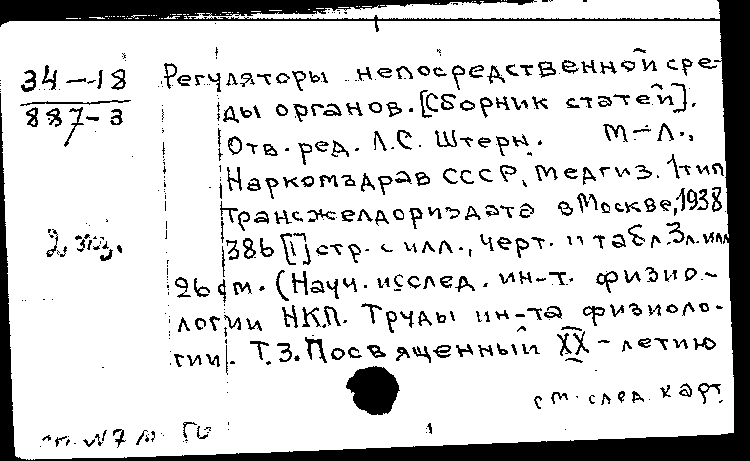 34-18
887-3
Регуляторы непосредственной сре-
ды органов. [Сборник статей].
Отв. ред. Л.С. Штерн. М-Л.,
Наркомздрав СССР, Медгиз. 1 тип
Трансжелдориздата в Москве, 1938
386 [1] стр. с илл., черт. и табл. 3 л. илл
2 экз.
26 см. (Науч. исслед. ин-т. физио-
логии НКП. Труды ин-та физиоло-
гии. Т. 3. Посвященный XX-летию
см. след. карт